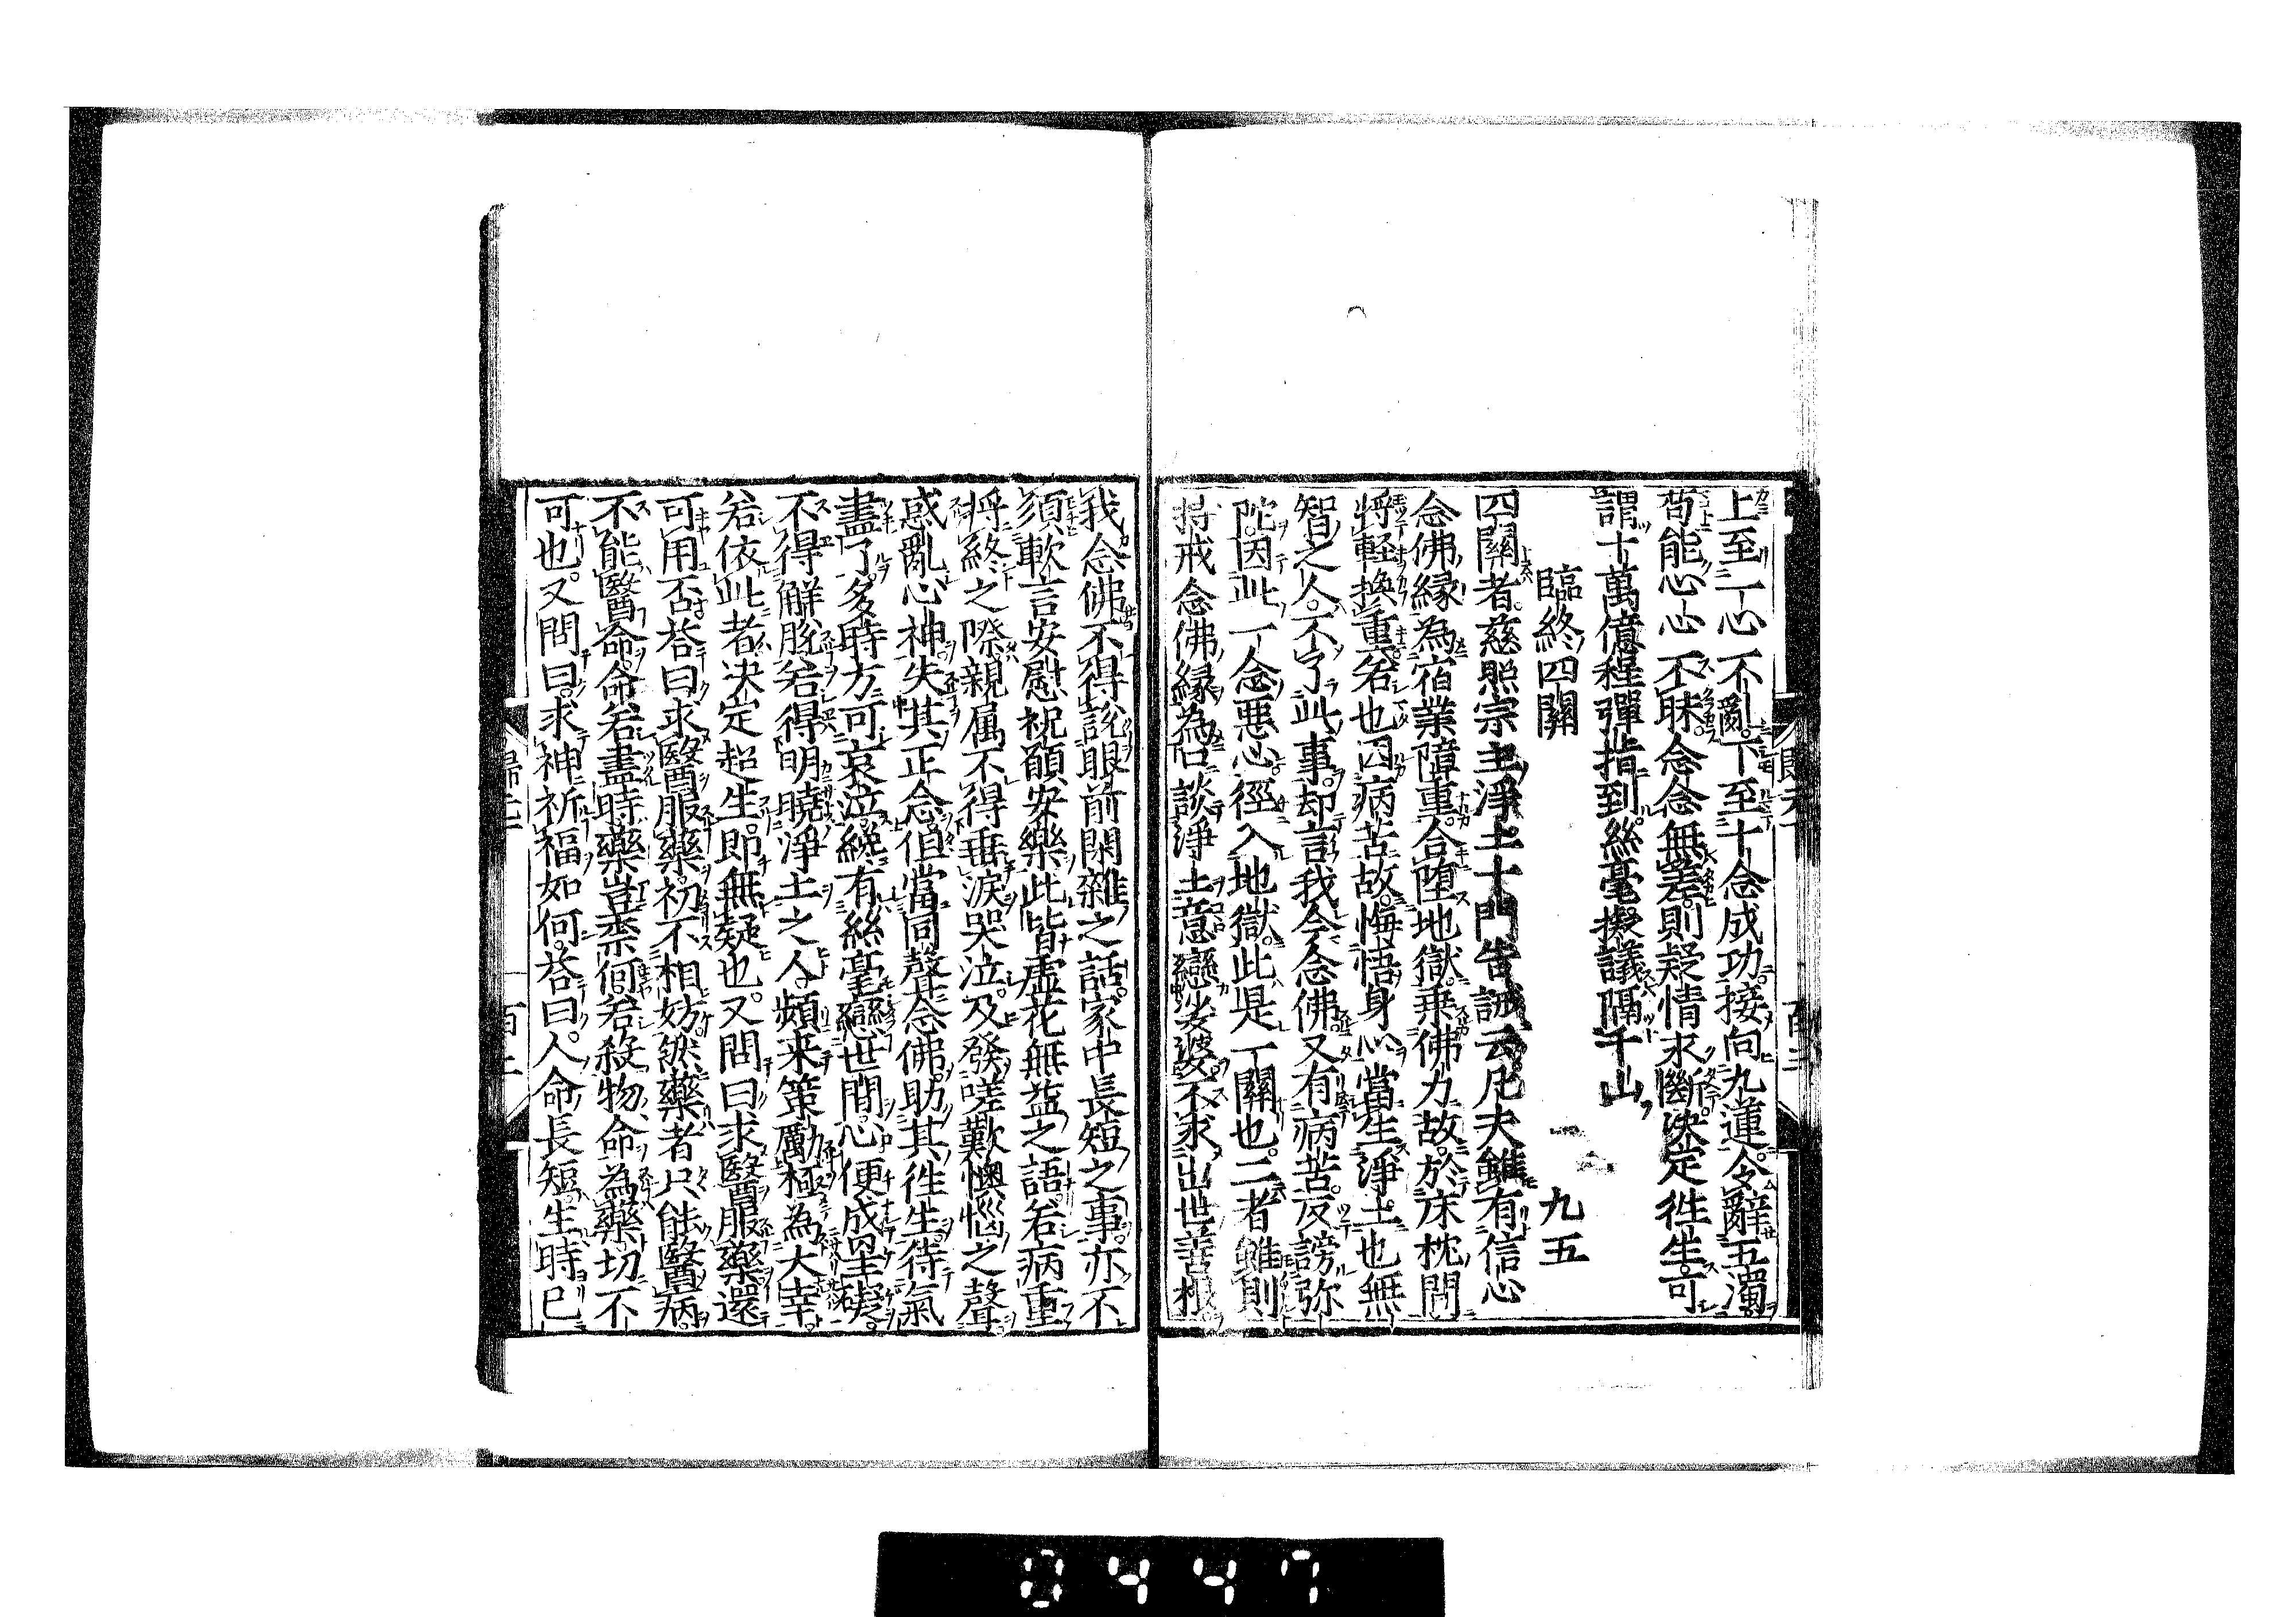 上至一心不亂。下至十念成功。接向九蓮。令辭五濁
苟能心心不昧。念念無差。則疑情永斷。決定徃生。可
謂十萬億程彈指到。絲毫擬議隔千山
臨終四關 九五
四關者。慈照宗主淨土十門告誡云。凡夫雖有信心
念佛緣為宿業障重。合墮地獄。乗佛力故。於床枕間
將輕換重。若也因病苦故。悔悟身心。當生淨土也無
智之人。不了此事。却言我今念佛又有病苦。反謗弥
陀。因此一念惡心。徑入地獄。此是一關也。二者雖則
持戒念佛緣為口談淨土意戀娑婆。不求出世善根。
我念佛不得說眼前閑雜之話。家中長短之事。亦不
須軟言安慰祝願安樂此皆虚花無益之語。若病重
将終之際。親属不得垂淚哭泣。及發嗟歎懊惱之聲
惑亂心神失其正念但當同聲念佛助其徃生。待氣
盡了。多時方可哀泣。纔有絲毫戀世間心便成罣礙。
不得解脫若得明曉淨土之人。頻来策勵極為大幸。
若依此者决定超生。即無疑也。又問曰求醫服藥還
可用否荅曰求醫服藥。初不相妨然藥者只能醫病。
不能醫命。命若盡時藥豈柰何。若殺物命為藥切不
可也。又問曰。求神祈福如何。荅曰。人命長短生時已
0447